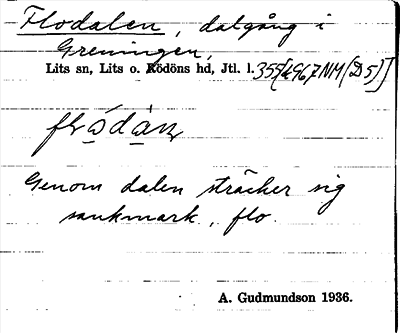 Flodalen, dalgång i
Greningen,
Lits sn, Lits o. Rödöns hd, Jtl. l. 355[496,7NM(D5)]
Genom dalen sträcker sig
sankmark, flo.
A. Gudmundson 1936.